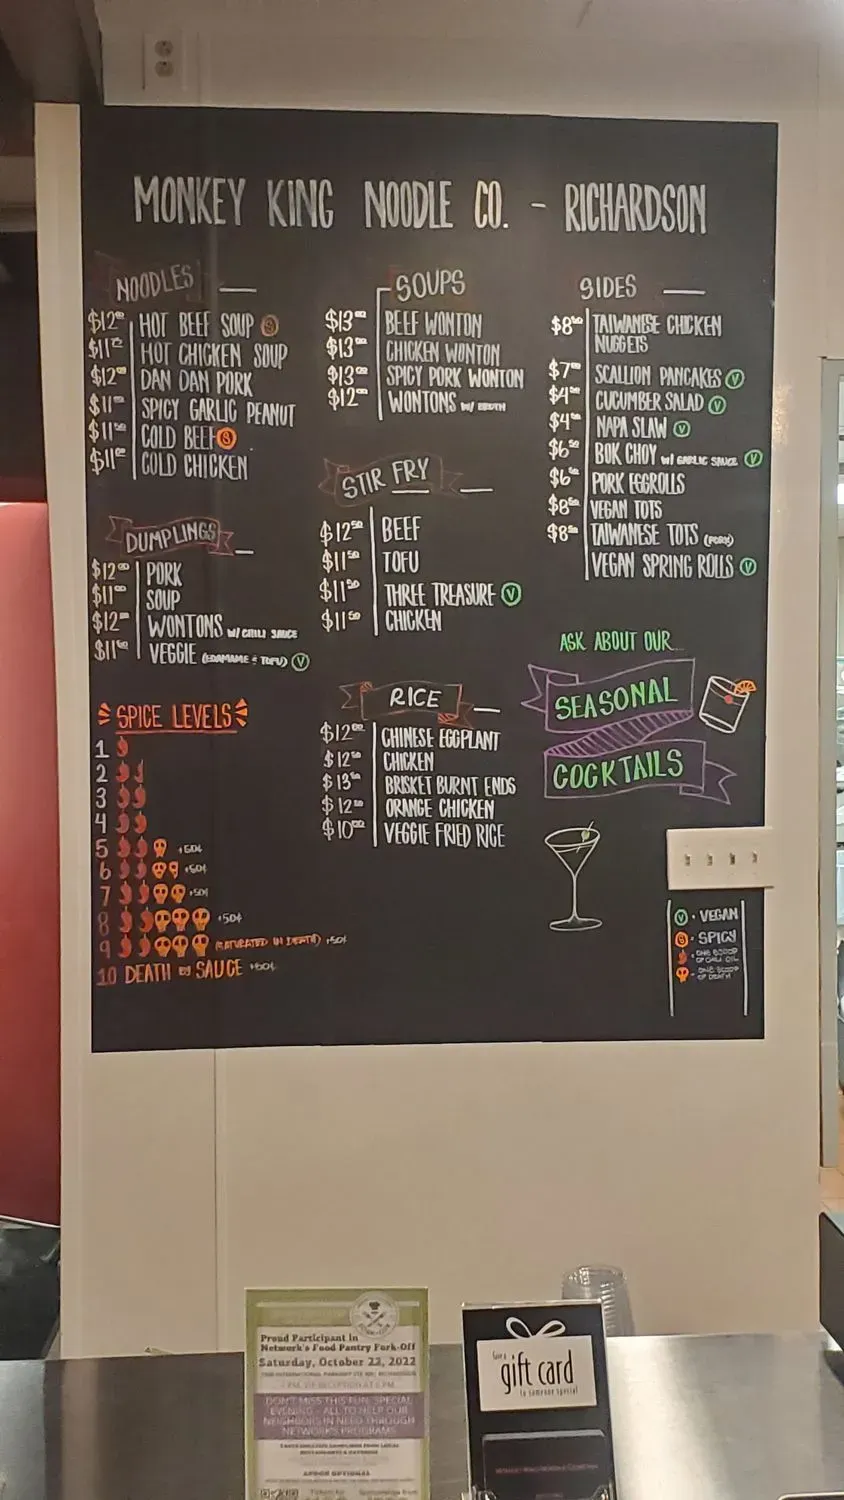 MONKEY KING NOODLE CO. - RICHARDSON
NOODLES
$12 HOT BEEF SOUP
$11 HOT CHICKEN SOUP
$12 DAN DAN PORK
$11 SPICY GARLIC PEANUT
$11 COLD BEEF
$11 COLD CHICKEN
DUMPLINGS
$12 PORK
$11 SOUP
$12 WONTONS W/ CHILI SAUCE
$11 VEGGIE (EDAMAME & TOFU) V
SPICE LEVELS
1
2
3
4
5 +50¢
6 +50¢
7 +50¢
8 +50¢
9 (SATURATED IN DEATH) +50¢
10 DEATH BY SAUCE +50¢
SOUPS
$13 BEEF WONTON
$13 CHICKEN WONTON
$13 SPICY PORK WONTON
$12 WONTONS W/ BROTH
STIR FRY
$12.50 BEEF
$11.50 TOFU
$11.50 THREE TREASURE V
$11.50 CHICKEN
RICE
$12 CHINESE EGGPLANT
$12 CHICKEN
$13 BRISKET BURNT ENDS
$12 ORANGE CHICKEN
$10 VEGGIE FRIED RICE
SIDES
$8 TAIWANESE CHICKEN
NUGGETS
$7 SCALLION PANCAKES V
$4 CUCUMBER SALAD V
$4 NAPA SLAW V
$6 BOK CHOY W/ GARLIC SAUCE V
$6 PORK EGGROLLS
$8 VEGAN TOTS
$8 TAIWANESE TOTS (PORK)
VEGAN SPRING ROLLS V
ASK ABOUT OUR...
SEASONAL
COCKTAILS
V - VEGAN
- SPICY
- ONE SCOOP
OF CHILI OIL
- ONE SCOOP
OF DEATH
Proud Participant in
Network's Food Pantry Fork-Off
Saturday, October 22, 2022
DON'T MISS THIS FUN, SPECIAL
EVENING - ALL TO HELP OUR
NEIGHBORS IN NEED THROUGH
NETWORK'S PROGRAMS
Give a
gift card
to someone special